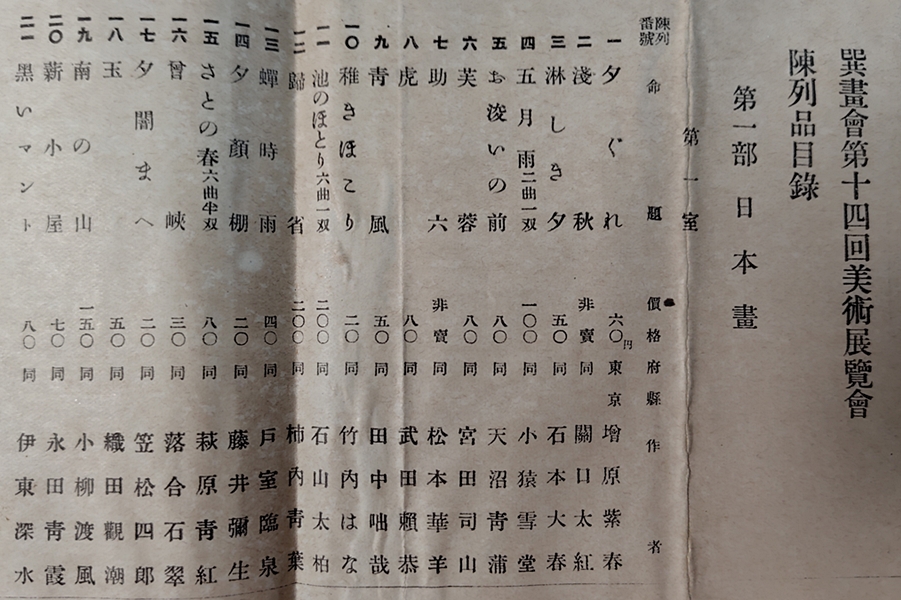 巽畫會第十四回美術展覽會
陳列品目錄
第一部 日本畫
第一室
陳列番號 命題 價格 府縣 作者
一 夕ぐれ 六〇円 東京 增原紫春
二 淺秋 非賣 同 關口太紅
三 淋しき夕 五〇 同 石本大春
四 五月雨 二曲一双 一〇〇 同 小猿雪堂
五 お浚いの前 八〇 同 天沼靑蒲
六 芙蓉 八〇 同 宮田司山
七 助六 非賣 同 松本華羊
八 虎 八〇 同 武田賴恭
九 靑風 五〇 同 田中咄哉
一〇 稚きほこり 二〇 同 竹內はな
一一 池のほとり 六曲一双 二〇〇 同 石山太柏
一二 歸省 二〇〇 同 柿內靑葉
一三 蟬時雨 四〇 同 戶室臨泉
一四 夕顏棚 二〇 同 藤井彌生
一五 さとの春 六曲半双 八〇 同 萩原靑紅
一六 曾峽 三〇 同 落合石翠
一七 夕闇まへ 二〇 同 笠松四郎
一八 玉 五〇 同 織田觀潮
一九 南の山 一五〇 同 小柳渡風
二〇 薪小屋 七〇 同 永田靑霞
二一 黑いマント 八〇 同 伊東深水